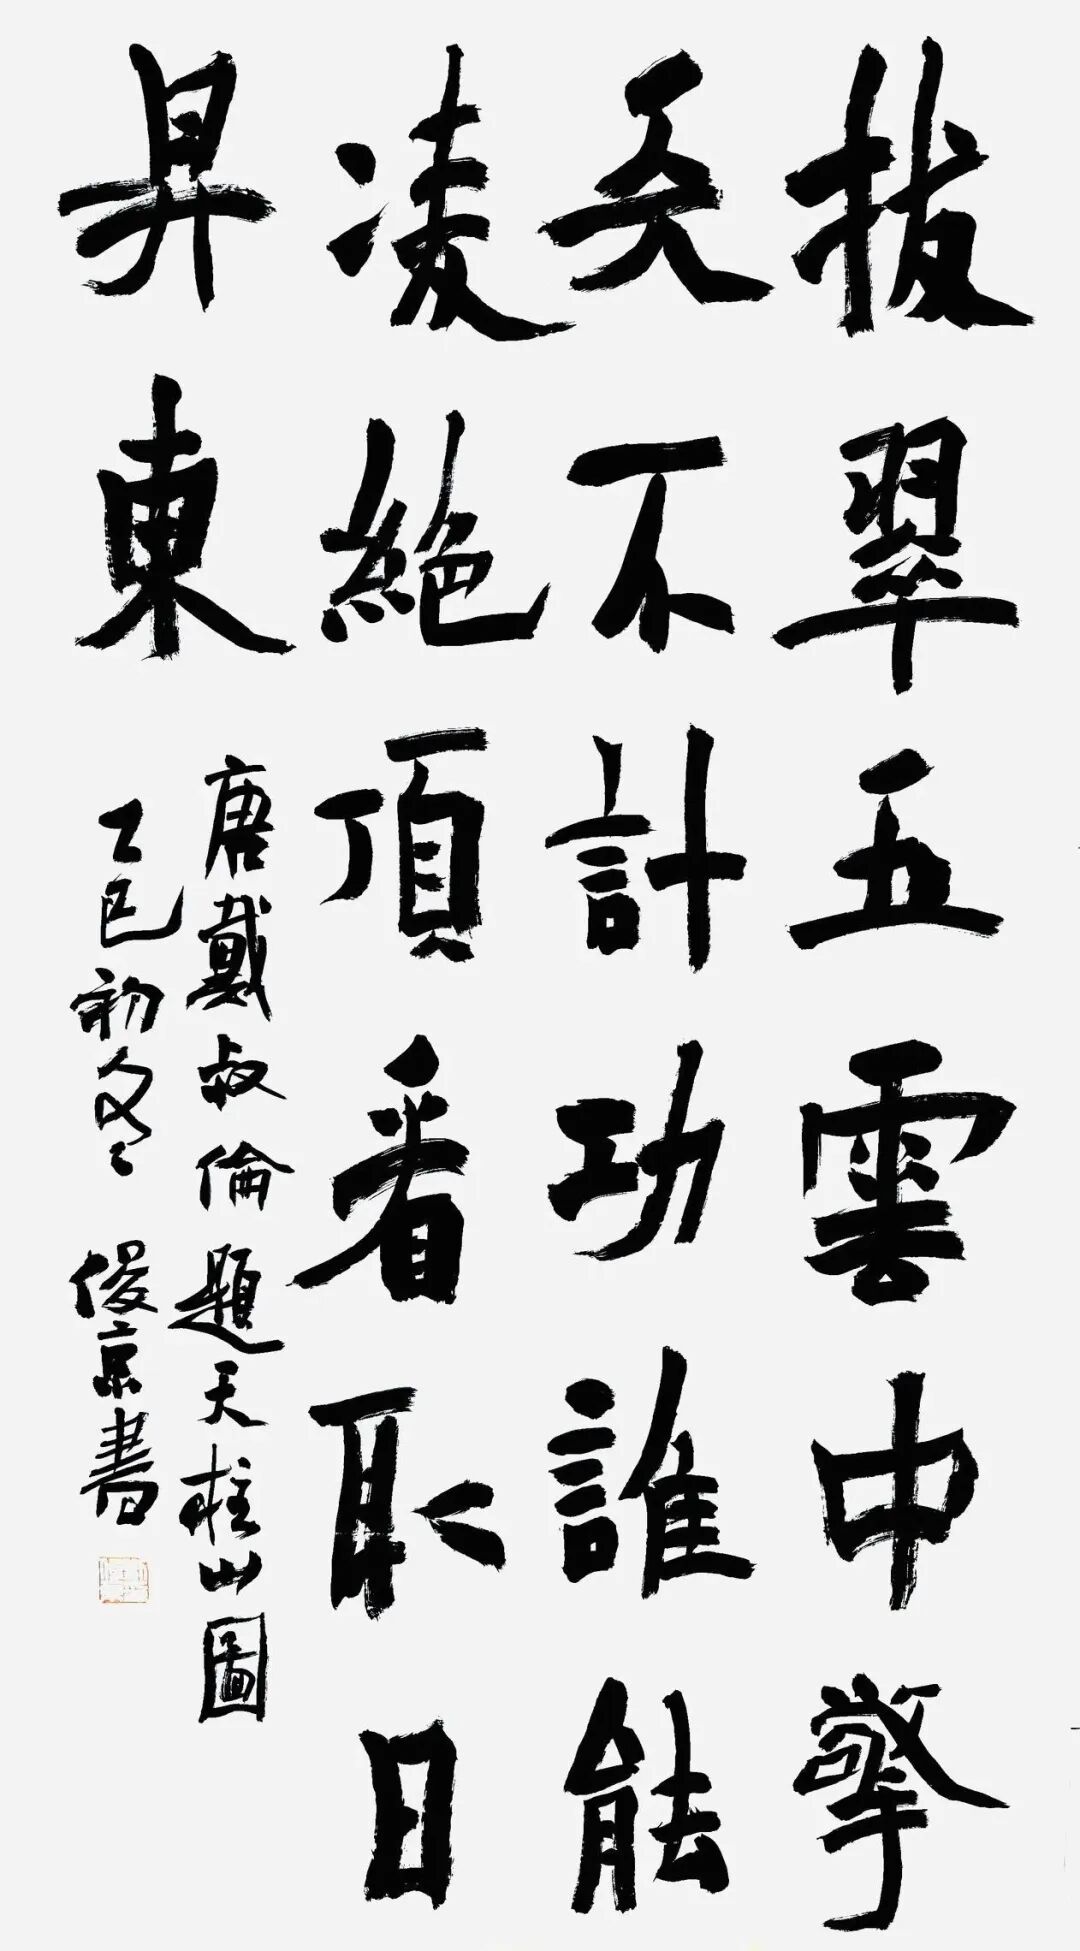 拔翠五雲中擎
天不計功誰能
凌絶頂看取日
昇東
唐戴叔倫題天柱山圖
乙巳初冬俊京書